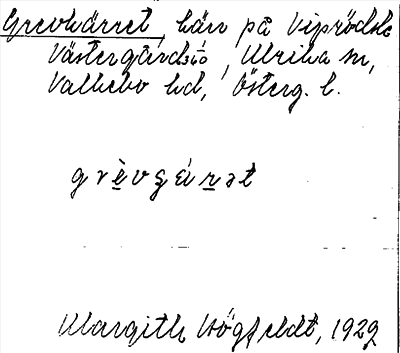 Grevkärret, kärr på Viprödsle
Västergård 3/40, Ulrika sn,
Valkebo hd, Österg. l.
grèvɕä́rət
Margith Högfeldt, 1929